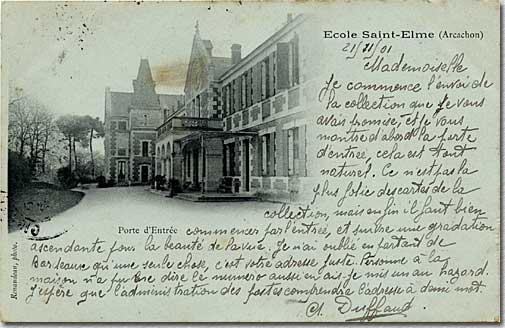 Ecole Saint-Elme (Arcachon)
21/11/01
Mademoiselle
Je commence l'envoi de
la collection que je vous
avais promise et je vous
montre d'abord la porte
d'entrée, cela est tout
naturel. Ce n'est pas la
plus jolie des cartes de la
collection, mais enfin il faut bien
Porte d'Entrée
commencer par l'entrée, et suivre une gradation
ascendante pour la beauté de la vue. Je n'ai oublié en partant de
Bordeaux qu'une seule chose, c'est votre adresse juste. Personne à la
maison n'a pu me dire le numero aussi en ai-je mis un au hazard.
J'espère que l'administration des postes comprendra l'adresse à demi mot.
Duffaud
Renaudeau, phot.